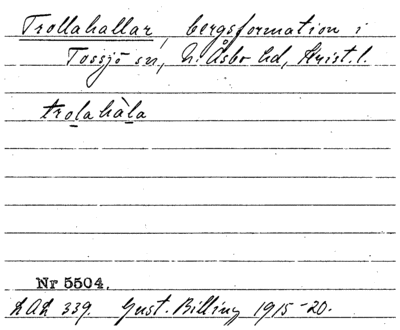 Trollahallar, bergsformation i
Tossjö sn, N. Åsbo hd, Krist. l.
trolahàla
Nr 5504.
LAL 339. Gust. Billing 1915-20.